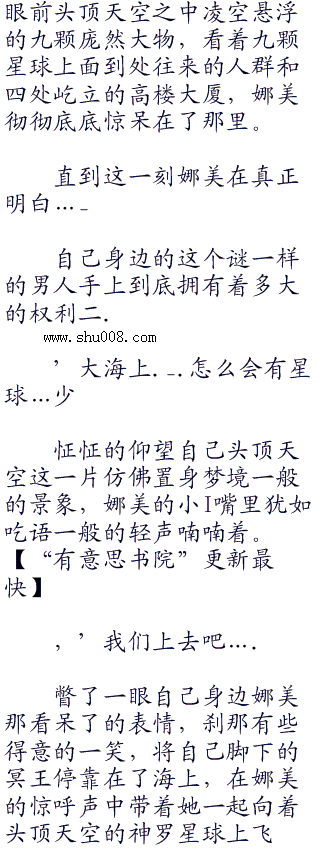 眼前头顶天空之中凌空悬浮
的九颗庞然大物，看着九颗
星球上面到处往来的人群和
四处屹立的高楼大厦，娜美
彻彻底底惊呆在了那里。
直到这一刻娜美在真正
明白…_
自己身边的这个谜一样
的男人手上到底拥有着多大
的权利二.
www.shu008.com
’大海上._..怎么会有星
球…少
怔怔的仰望自己头顶天
空这一片仿佛置身梦境一般
的景象，娜美的小I嘴里犹如
呓语一般的轻声喃喃着。
【“有意思书院”更新最
快】
，’我们上去吧….
瞥了一眼自己身边娜美
那看呆了的表情，刹那有些
得意的一笑，将自己脚下的
冥王停靠在了海上，在娜美
的惊呼声中带着她一起向着
头顶天空的神罗星球上飞